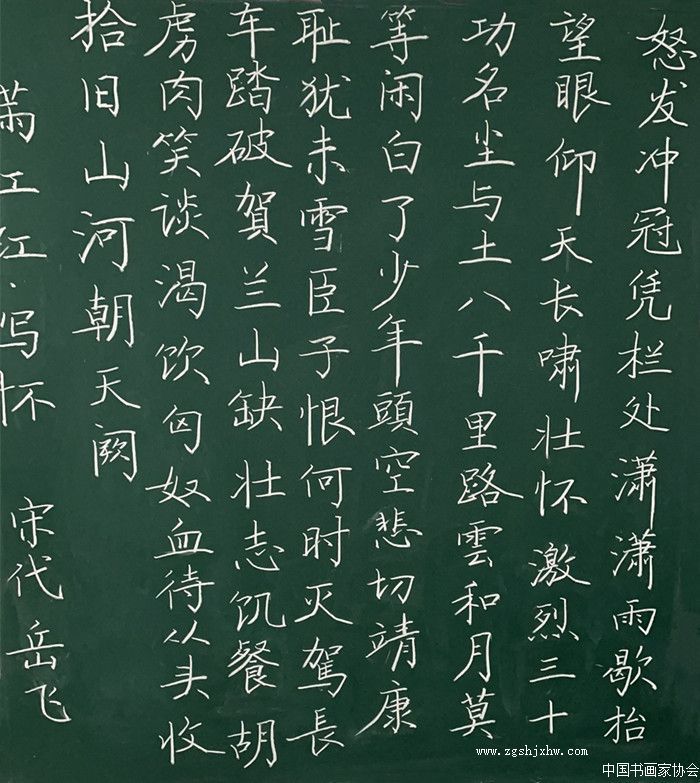 怒发冲冠凭栏处潇潇雨歇抬
望眼仰天长啸壮怀激烈三十
功名尘与土八千里路雲和月莫
等闲白了少年頭空悲切靖康
耻犹未雪臣子恨何时灭駕長
车踏破賀兰山缺壮志饥餐胡
虏肉笑谈渴饮匈奴血待从头收
拾旧山河朝天阙
满江红·写怀 宋代岳飞
www.zgshjxhw.com
中国书画家协会